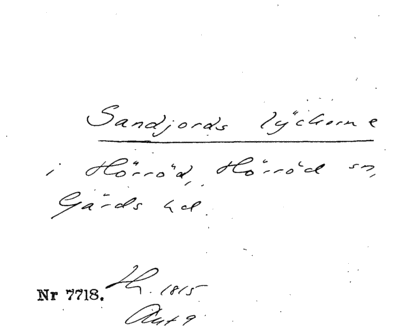 Sandjords lyckorne
i Hörröd, Hörröd sn,
Gärds hd.
Nr 7718. 1815